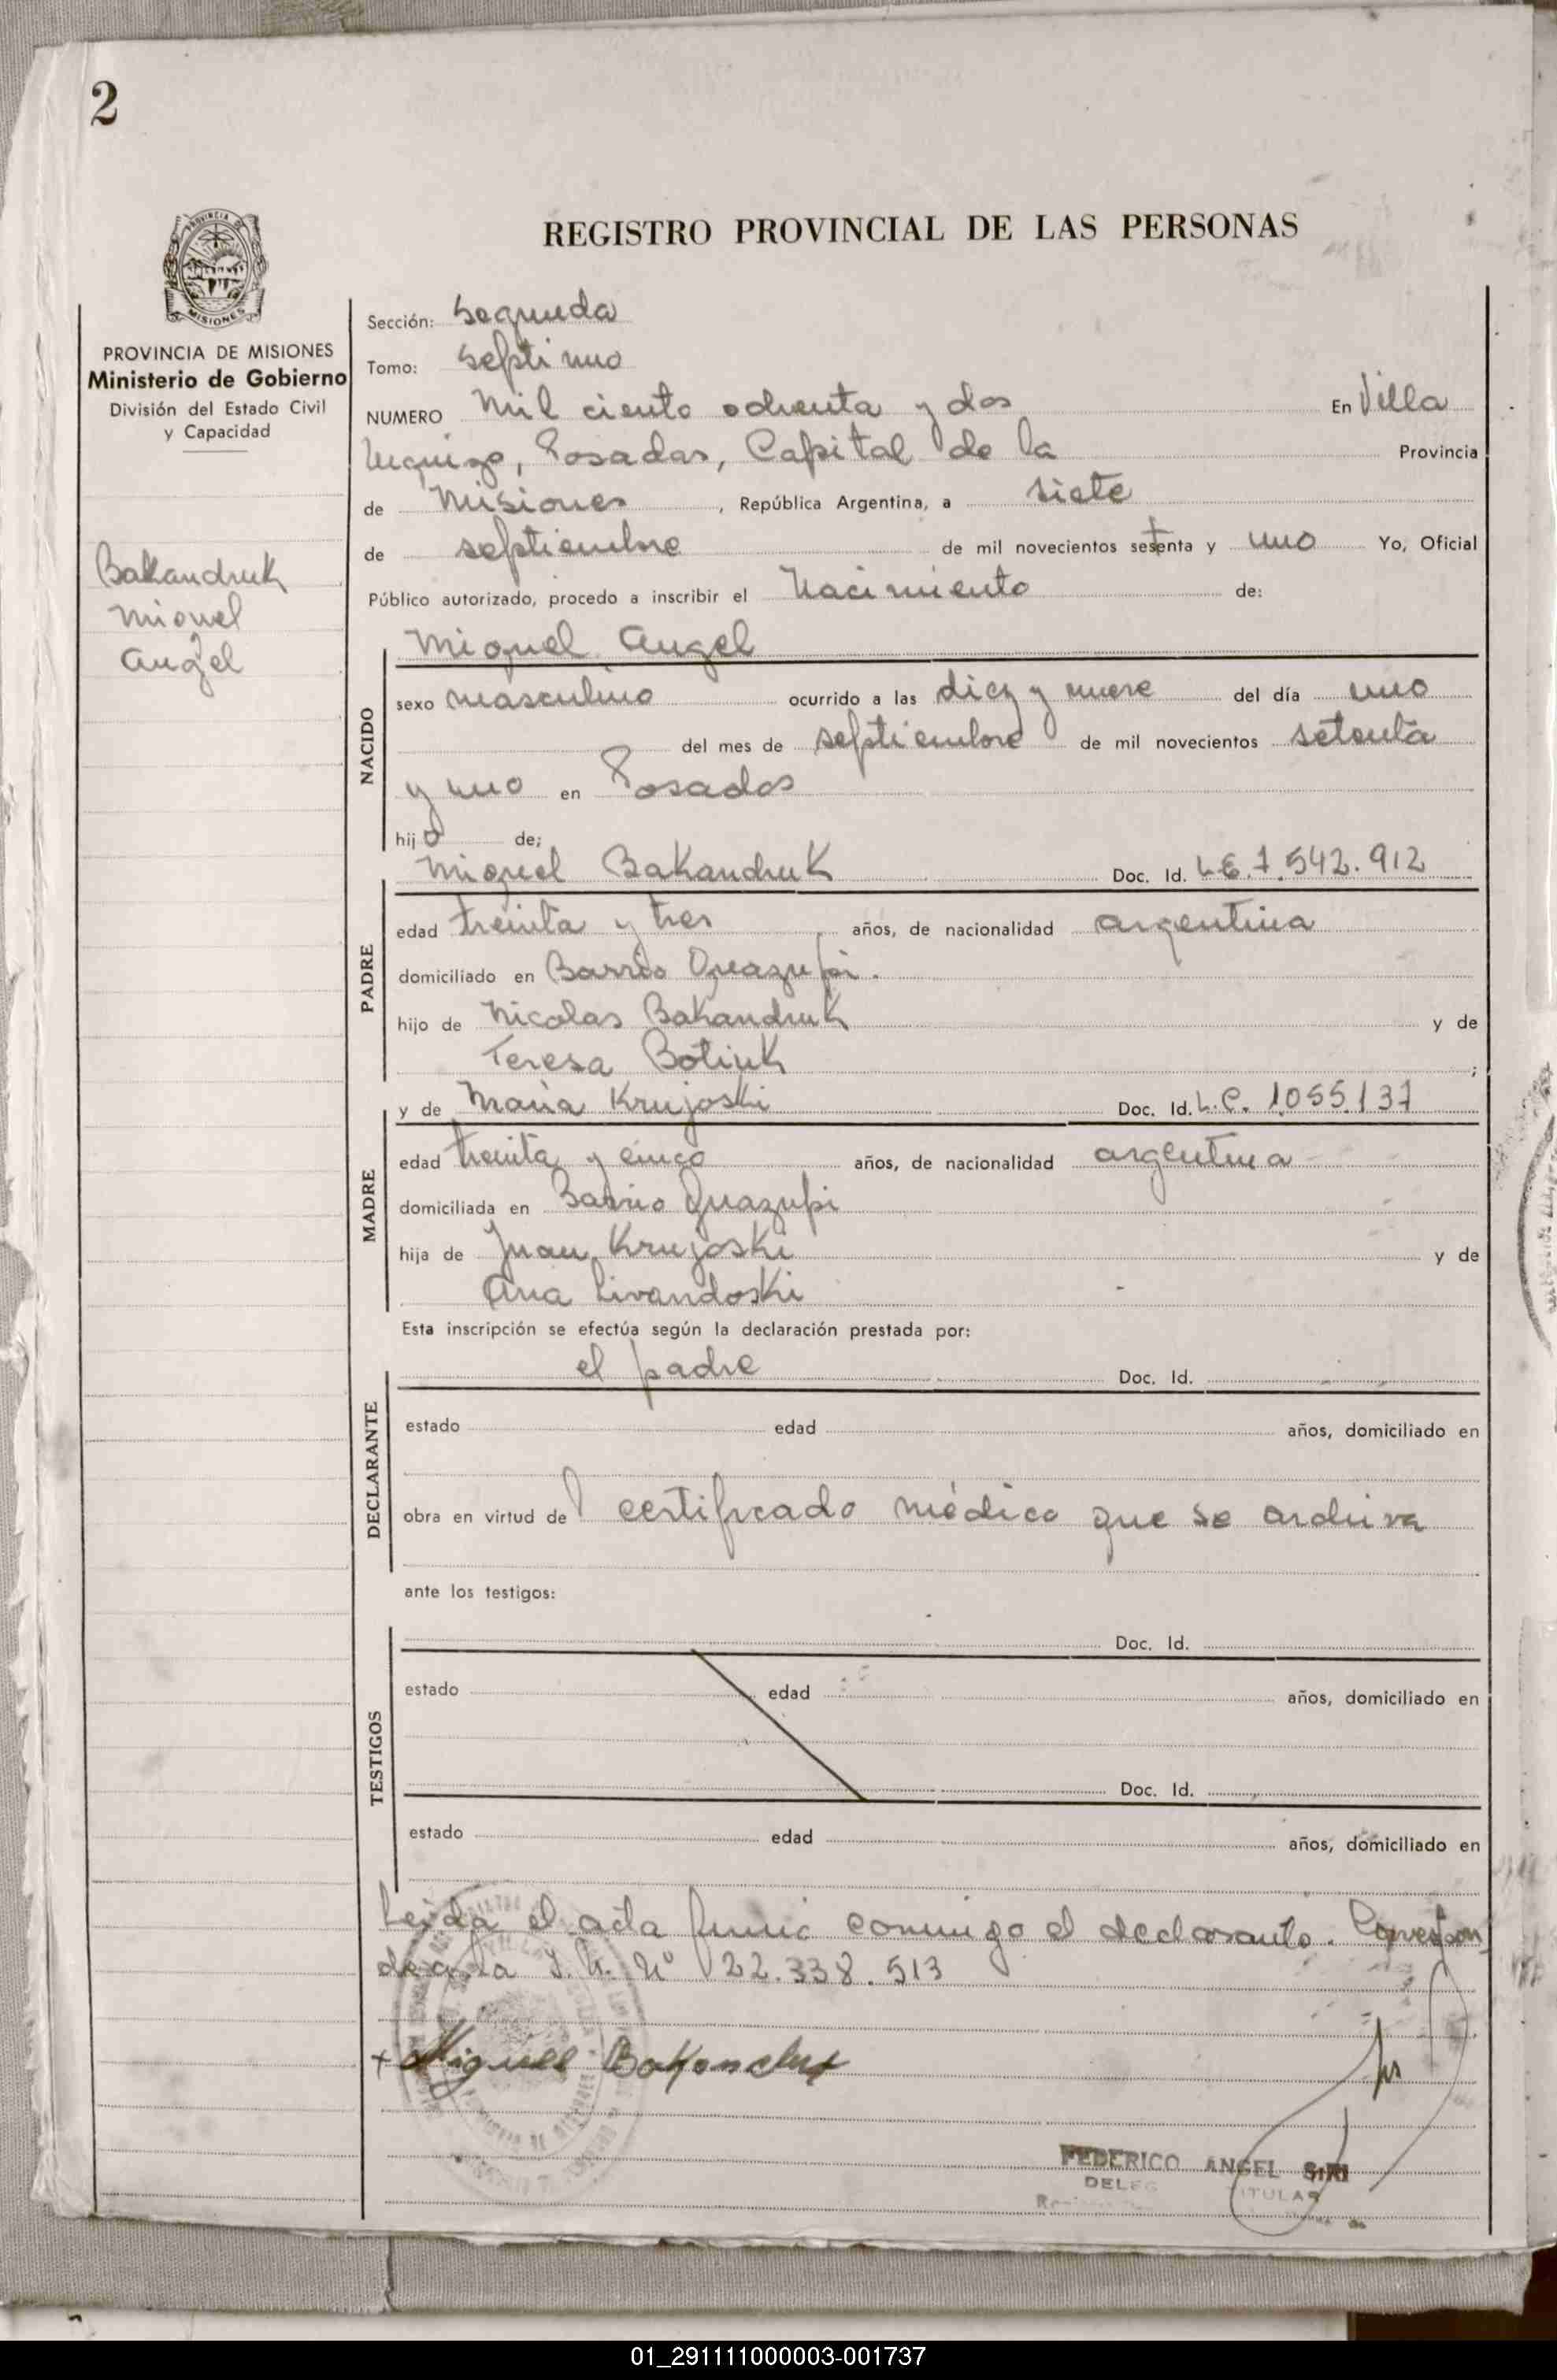 2
REGISTRO PROVINCIAL DE LAS PERSONAS
PROVINCIA DE MISIONES
Ministerio de Gobierno
División del Estado Civil
y Capacidad
Bakandruk
Miguel
Angel
Sección: Segunda
Tomo: Septimo
NUMERO Mil ciento ochenta y dos En Villa
Urquiza, Posadas, Capital de la Provincia
de Misiones, República Argentina, a siete
de septiembre de mil novecientos setenta y uno Yo, Oficial
Público autorizado, procedo a inscribir el Nacimiento de:
Miguel Angel
NACIDO
sexo masculino ocurrido a las diez y nueve del día uno
del mes de septiembre de mil novecientos setenta
y uno en Posadas
hijo de;
Miguel Bakandruk Doc. Id. L.E. 7.542.912
PADRE
edad treinta y tres años, de nacionalidad argentina
domiciliado en Barrio Guazupi.
hijo de Nicolas Bakandruk y de
Teresa Botiuk ;
y de Maria Krujoski Doc. Id. L.C. 1.055.137
MADRE
edad treinta y cinco años, de nacionalidad argentina
domiciliada en Barrio Guazupi
hija de Juan Krujoski y de
Ana Livandoski
Esta inscripción se efectúa según la declaración prestada por:
el padre Doc. Id.
DECLARANTE
estado edad años, domiciliado en
obra en virtud del certificado médico que se archiva
ante los testigos:
Doc. Id.
TESTIGOS
estado edad años, domiciliado en
Doc. Id.
estado edad años, domiciliado en
Leida el acta firma conmigo el declarante. Correspon
de a la D.N.I. Nº 22.338.513
+ Miguel Bakandruk
FEDERICO ANGEL SIRI
DELEG TITULAR
01_291111000003-001737